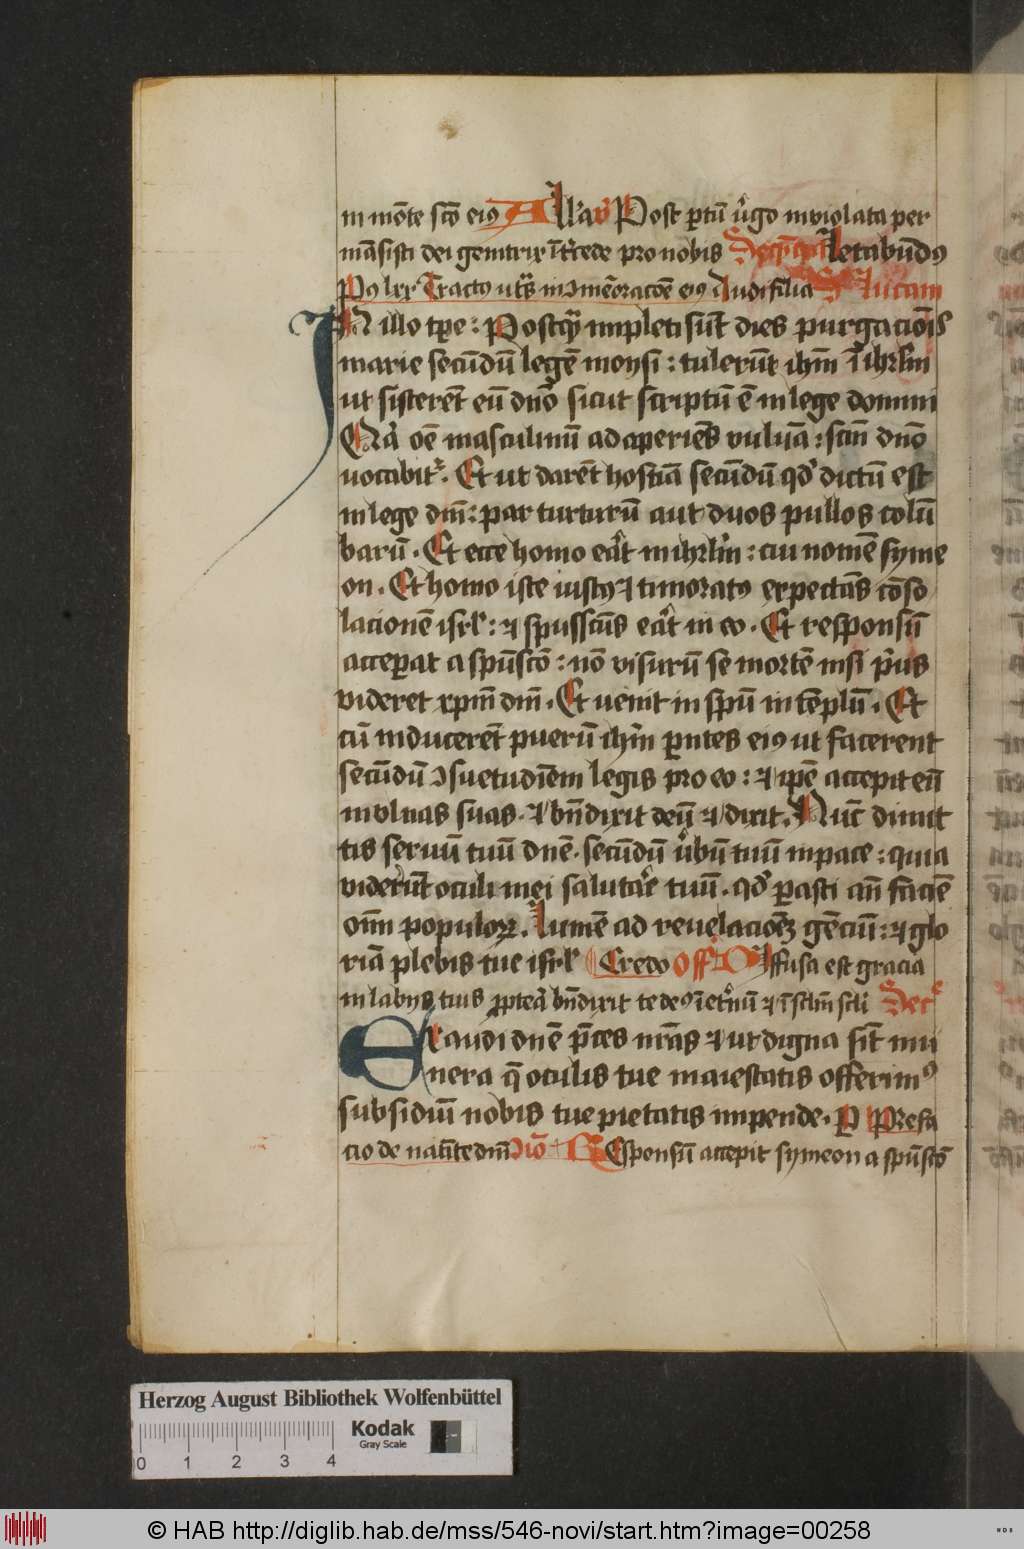 in mōte sc̄o ei⁹ All'a v̄ Post ꝑtū v̓go inviolata per
māsisti dei genitrix ītercede pro nobis Letabūd⁹
Tract⁹ ut s̄ in ↄmēoracōe ei⁹ Audi filia Lucam
IN illo tꝑe : Postꝙ̄ impleti sūt dies purgacōis
marie secūdū legē moysi : tulerūt ihm̄ ī ihrl̄m
ut sisterēt eū dn̄o sicut scriptū ē in lege domini
Q̄a oē masculinū adaperiēs vuluā : scm̄ dn̄o
vocabit᷑. Et ut darēt hostiā secūdū qd̓ dictū est
in lege dn̄i : par turturū aut duos pullos colū
barū. Et ecce homo eāt in ihrl̄m : cui nomē syme
on. Et homo iste iust⁹ ⁊ timorat⁹ expectās cōso
lacionē isrl̄ : ⁊ spūs scūs eāt in eo. Et responsū
acceꝑat a spū scō : nō visurū se mortē nisi p̓us
videret xpm̄ dn̄i. Et uenit in spū in tēplū. Et
cū inducerēt puerū ihm̄ ꝑntes ei⁹ ut facerent
secūdū ↄsuetudīem legis pro eo : ⁊ ip̄e accepit eū
in vlnas suas. ⁊ bn̄dixit deū ⁊ dixit. Nūc dimit
tis seruū tuū dn̄e. secūdū v̓bū tuū in pace : quia
viderūt oculi mei salutāe tuū. qd̓ ꝑasti an̄ faciē
om̄i populoꝝ. Lumē ad reuelacōeꝫ gēciū : ⁊ glo
riā plebis tue isrl̄ Credo Off Diffusa est gracia
in labijs tuis ꝓpteā bn̄dixit te de⁹ ī etnū ⁊ ī sclm̄ scl̄i Secr̄
Exaudi dn̄e p̄ces nr̄as ⁊ ut digna sīt mu
nera q̄ oculis tue maiestatis offerim⁹
subsidiū nobis tue pietatis impende. P Prefa
cio de natīte dn̄i ↄīo Responsū accepit symeon a spū scō
Herzog August Bibliothek Wolfenbüttel
Kodak
Gray Scale
0 1 2 3 4
© HAB http://diglib.hab.de/mss/546-novi/start.htm?image=00258